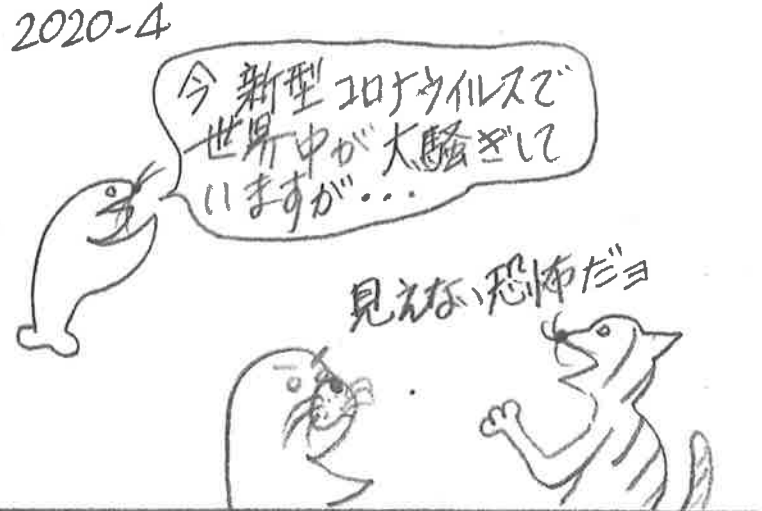 2020-4
今新型コロナウイルスで
世界中が大騒ぎして
いますが・・・
見えない恐怖だヨ